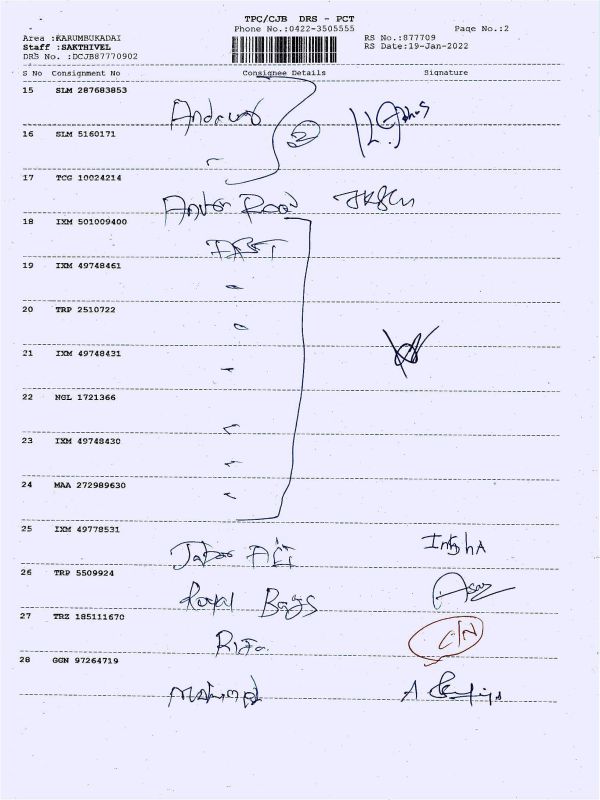 TPC/CJB DRS - PCT
Phone No.:0422-3505555
Page No.:2
Area :KARUMBUKADAI
RS No.:877709
Staff :SAKTHIVEL
RS Date:19-Jan-2022
DRS No. :DCJB87770902
S No Consignment No Consignee Details Signature
15 SLM 287683853
Andrews
2
16 SLM 5160171
17 TCG 10024214
Anton Rooi
18 IXM 501009400
19 IXM 49748461
20 TRP 2510722
21 IXM 49748431
22 NGL 1721366
23 IXM 49748430
24 MAA 272989630
25 IXM 49778531
Jabar Ali
26 TRP 5509924
Royal Bags
27 TRZ 185111670
Rifa
C/N
28 GGN 97264719